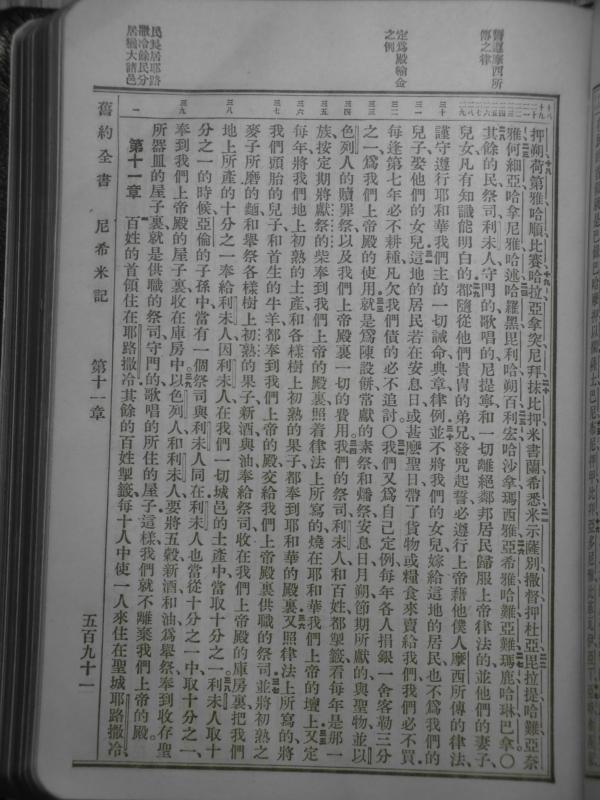 舊約全書 尼希米記 第十一章 五百九十一
誓遵摩西所
傳之律
定爲殿輸金
之例
民長居耶路
撒冷餘民分
居猶大諸邑
押朔荷第雅哈順比賽哈拉亞拿突尼拜抹比押米書蘭希悉米示薩別撒督押杜亞毘拉提哈難亞奈
雅何細亞哈拿尼雅哈述哈羅黑毘利哈朔百利宏哈沙拿瑪西雅亞希雅哈難亞難瑪鹿哈琳巴拿〇
其餘的民祭司利未人守門的歌唱的尼提寧和一切離絕鄰邦居民歸服上帝律法的並他們的妻子
兒女凡有知識能明白的都隨從他們貴冑的弟兄發咒起誓必遵行上帝藉他僕人摩西所傳的律法
謹守遵行耶和華我們主的一切誡命典章律例並不將我們的女兒嫁給這地的居民也不爲我們的
兒子娶他們的女兒這地的居民若在安息日或甚麼聖日帶了貨物或糧食來賣給我們我們必不買
每逢第七年必不耕種凡欠我們債的必不追討〇我們又爲自己定例每年各人捐銀一舍客勒三分
之一爲我們上帝殿的使用就是爲陳設餅當獻的素祭和燔祭安息日月朔節期所獻的與聖物並以
色列人的贖罪祭以及我們上帝殿裏一切的費用我們的祭司利未人和百姓都掣籤看每年是那一
族按定期將獻祭的柴奉到我們上帝的殿裏照着律法上所寫的燒在耶和華我們上帝的壇上又定
每年將我們地上初熟的土產和各樣樹上初熟的果子都奉到耶和華的殿裏又照律法上所寫的將
我們頭胎的兒子和首生的牛羊都奉到我們上帝的殿交給我們上帝殿裏供職的祭司並將初熟之
麥子所磨的麵和舉祭各樣樹上初熟的果子新酒與油奉給祭司收在我們上帝殿的庫房裏把我們
地上所產的十分之一奉給利未人因利未人在我們一切城邑的土產中當取十分之一利未人取十
分之一的時候亞倫的子孫中當有一個祭司與利未人同在利未人也當從十分之一中取十分之一
奉到我們上帝殿的屋子裏收在庫房中以色列人和利未人要將五穀新酒和油爲舉祭奉到收存聖
所器皿的屋子裏就是供職的祭司守門的歌唱的所住的屋子這樣我們就不離棄我們上帝的殿
第十一章 百姓的首領住在耶路撒冷其餘的百姓掣籤每十人中使一人來住在聖城耶路撒冷